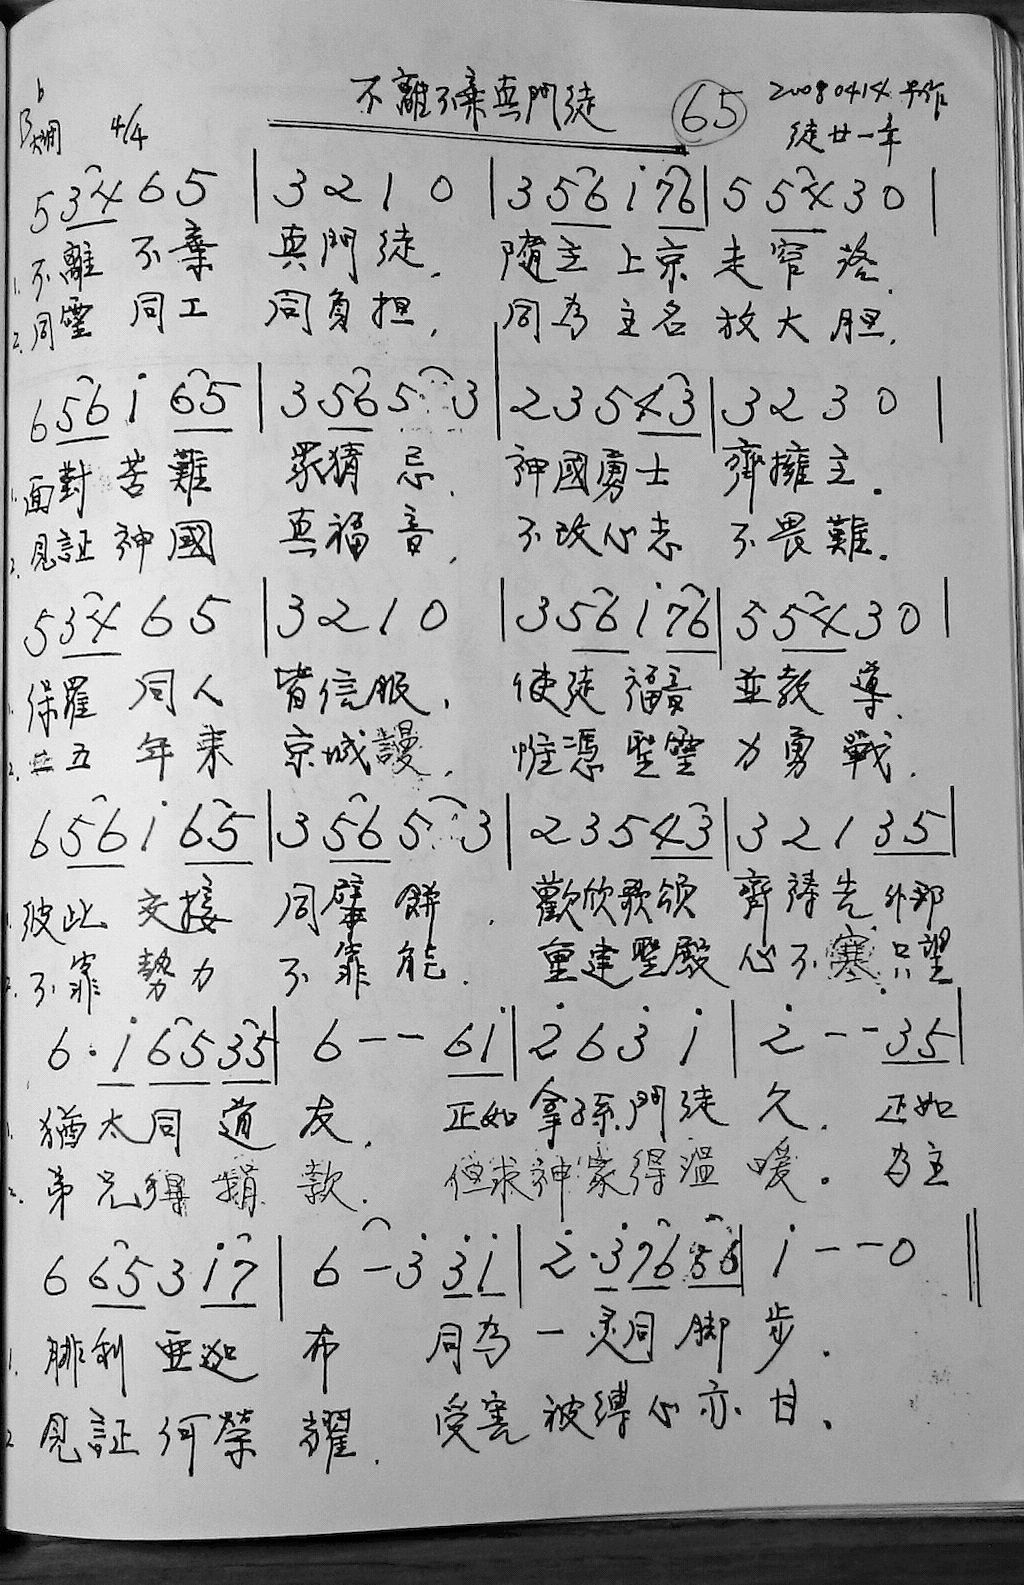 不離不棄真門徒 65 20080414 早作
bB大調 4/4 徒廿一章
5 34 6 5 | 3 2 1 0 | 3 56 i 76 | 5 54 3 0 |
1. 不離不棄 真門徒, 隨主上京走窄路.
2. 同靈同工 同負担, 同為主名放大胆.
6 56 i 65 | 3 56 5 3 | 2 3 5 43 | 3 2 3 0 |
1. 面對苦難 眾猜忌, 神國勇士 齊擁主.
2. 見証神國 真福音, 不改心志 不畏難.
5 34 6 5 | 3 2 1 0 | 3 56 i 76 | 5 54 3 0 |
1. 保羅同人 皆信服, 使徒福音 並教導.
2. 廿五年來 京城謾, 惟憑聖靈 力勇戰.
6 56 i 65 | 3 56 5 3 | 2 3 5 43 | 3 2 1 35 |
1. 彼此交接 同擘餅, 歡欣歌頌 齊禱告 外邦
2. 不靠勢力 不靠能. 重建聖殿 心不寒 只望
6 · i 65 35 | 6 - - 6i | 2 6 3 i | 2 - - 35 |
1. 猶太同道友, 正如拿孫門徒久. 正如
2. 弟兄得捐款. 但求神家得溫暖. 為主
6 65 3 i7 | 6 - 3 3i | 2 · 3 76 56 | i - - 0 ||
1. 腓利亞迦布 同為一灵同脚步.
2. 見証何榮耀. 受害被縛心亦甘.